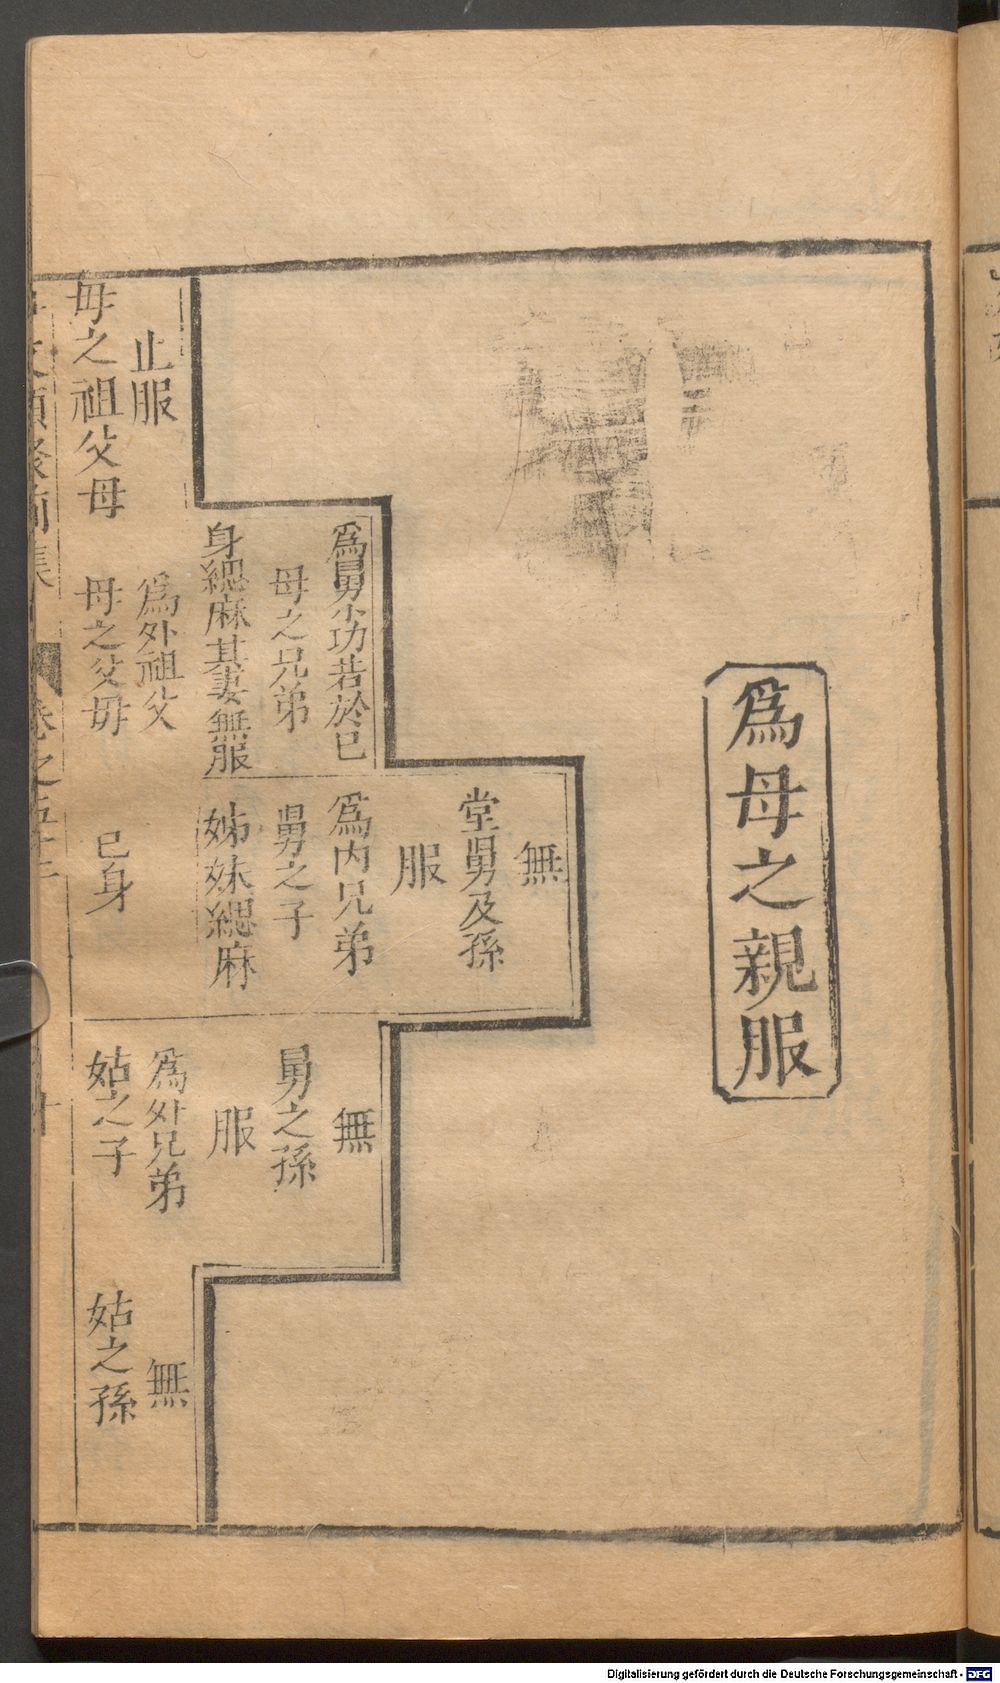 爲母之親服
無
堂舅及孫
服
爲舅小功若於己
母之兄弟
身緦麻其妻無服
爲内兄弟
舅之子
姊妹緦麻
無
舅之孫
服
止服
母之祖父母
爲外祖父
母之父母
己身
爲外兄弟
姑之子
無
姑之孫
Digitalisierung gefördert durch die Deutsche Forschungsgemeinschaft - DFG